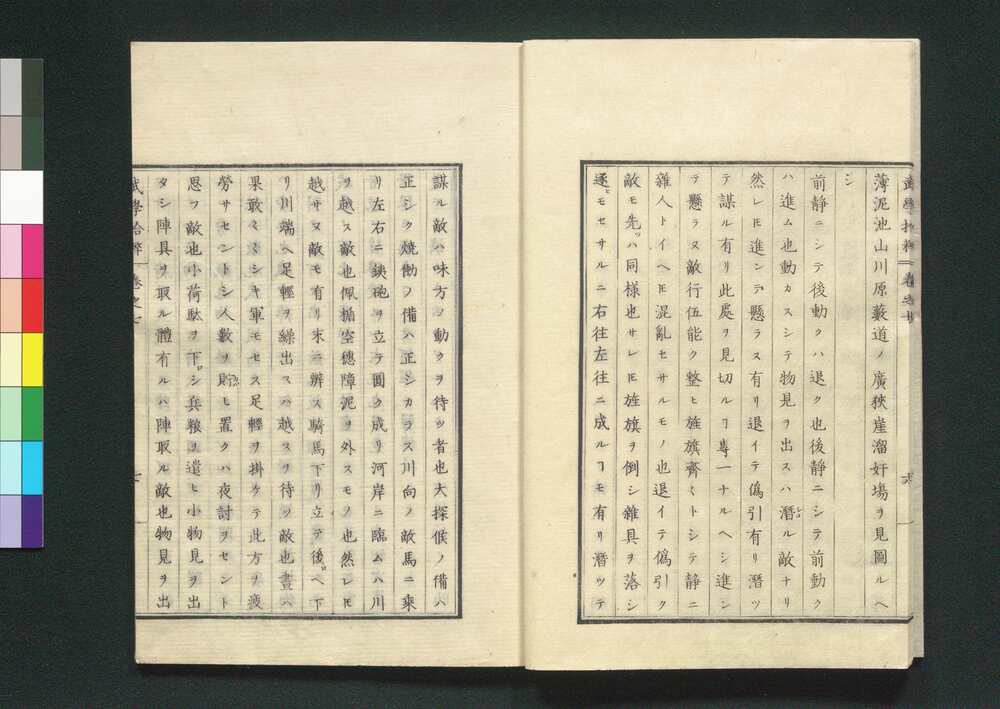 薄泥池山川原藪道ノ廣狹崖溜奸塲ヲ見圖ルヘ
シ
前靜ニシテ後動クハ退ク也後靜ニシテ前動ク
ハ進ム也動カスシテ物見ヲ出スハ潛ル敵ナリ
然レ𪜈進ンテ懸ラス有リ退イテ僞引有リ潛ツ
テ謀ル有リ此處ヲ見切ルヿ專一ナルヘシ進ン
ラ懸ラヌ敵行伍能ク整ヒ旌旗齊〻トシテ靜ニ
雜人トイヘ𪜈混亂セサルモノ也退イテ僞引ク
敵モ先ッハ同樣也サレ𪜈旌旗ヲ倒シ雜具ヲ落シ
逐ヒモセサルニ右往左往ニ成ルヿモ有リ潛ツテ
謀ル敵ハ味方ノ動クヲ待ツ者也大探候ノ備ハ
正シク燒働ノ備ハ正シカラス川向ノ敵馬ニ乘
リ左右ニ鋏砲ヲ立テ圓ク成リ河岸ニ臨ムハ川
ヲ越ス敵也佩楯空穗障泥ヲ外スモノ也然レ𪜈
越サヌ敵モ有リ末ニ辨ス騎馬下リ立テ後ロヘ下
リ川端ヘ足輕ヲ繰出スハ越スヲ待ツ敵也晝ハ
果敢〻〻シキ軍モセス足輕ヲ掛ケテ此方ヲ疲
勞サセントシ人數ヲ貯ヒ置クハ夜討ヲセント
思フ敵也小荷駄ヲ下ロシ兵粮ヲ遣ヒ小物見ヲ出
タシ陣具ヲ取ル體有ルハ陣取ル敵也物見ヲ出
武學拾粹 卷之七